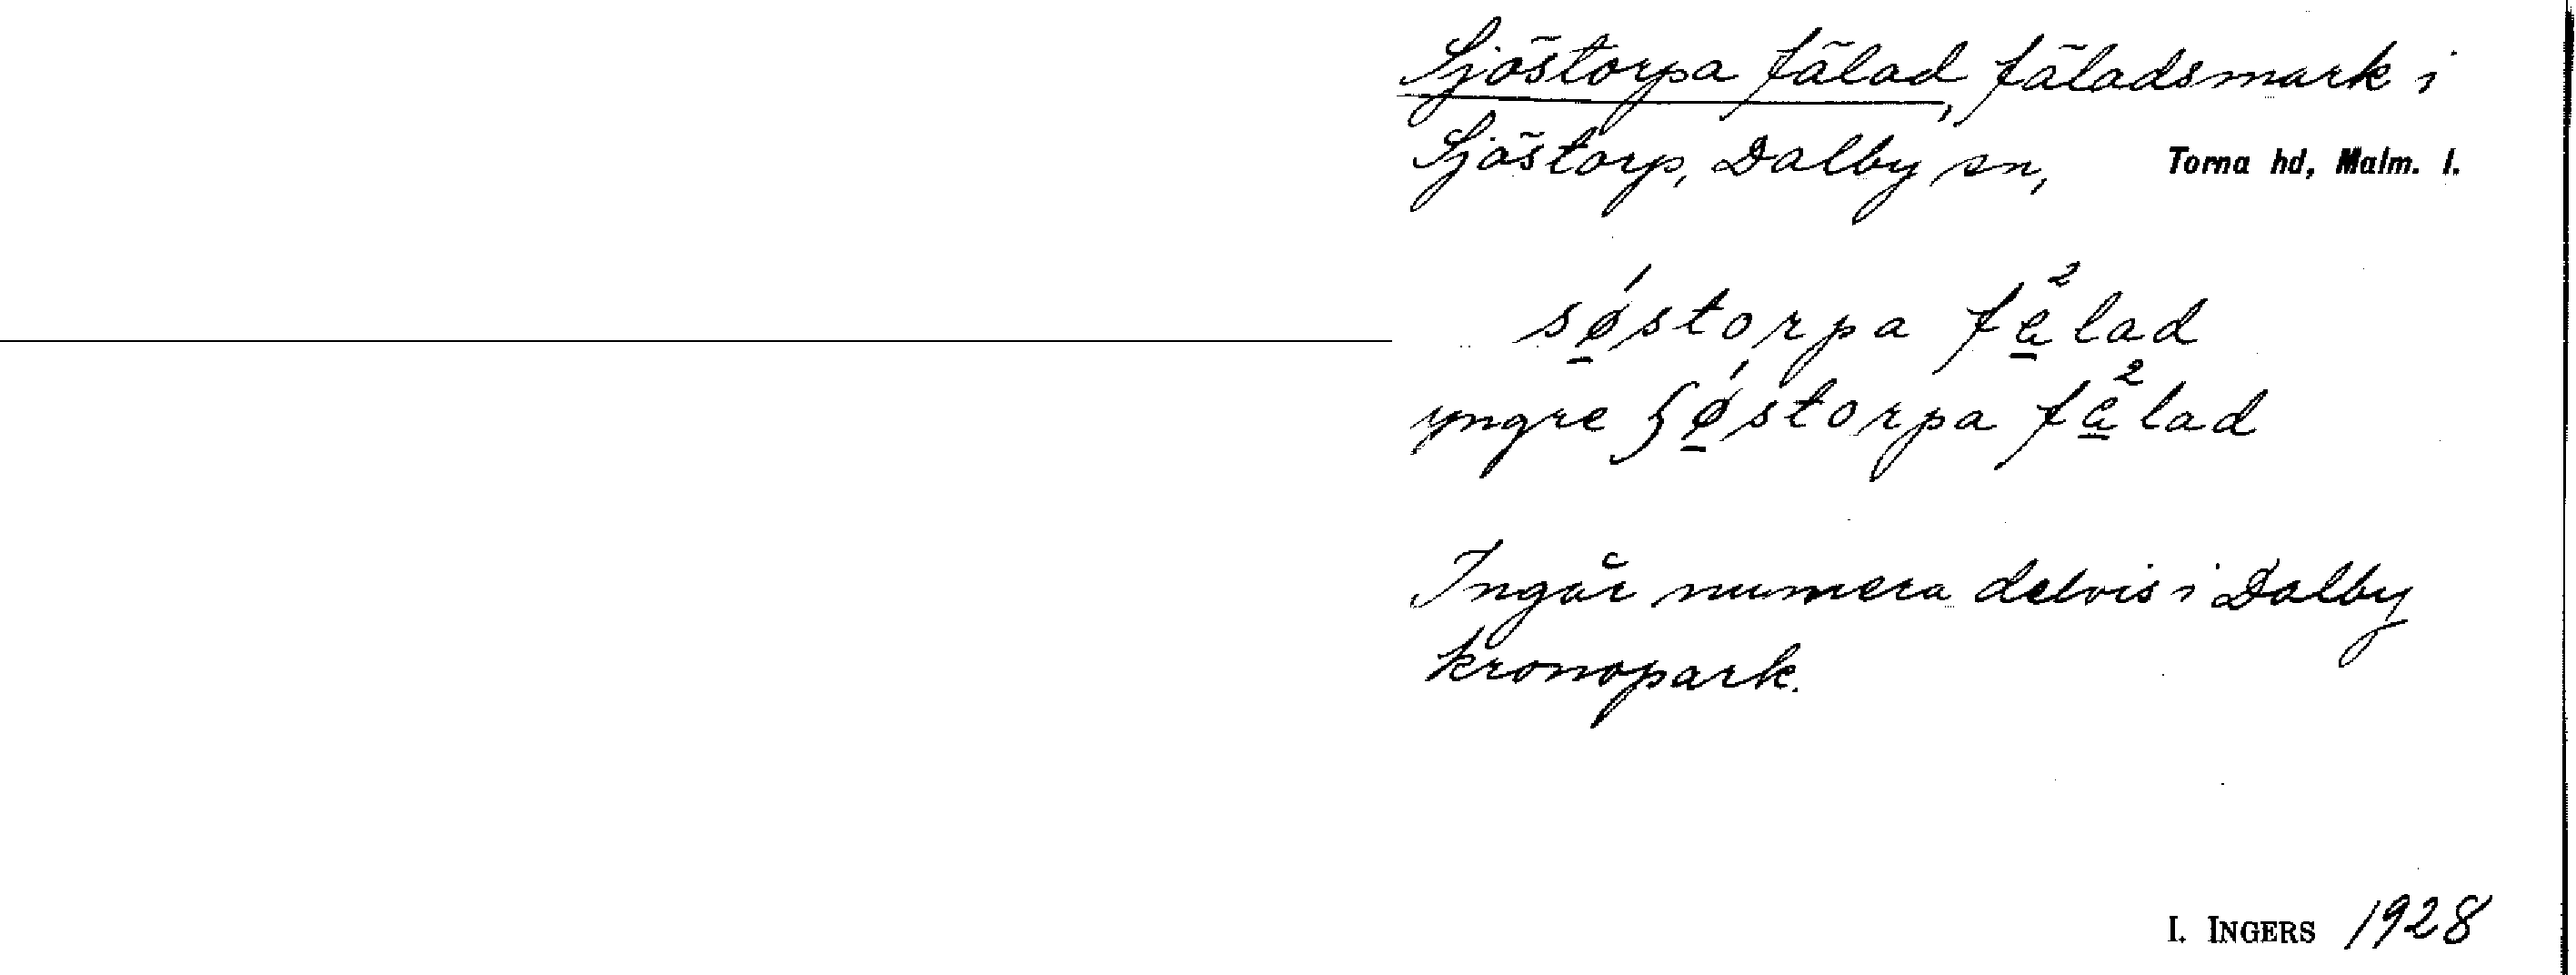 Sjöstorpa fälad, fäladsmark i
Sjöstorp, Dalby sn, Torna hd, Malm. l.
sǿ̱storpa fa̱²lad
yngre ʃǿ̱storpa fa̱²lad
Ingår numera delvis i Dalby
kronopark.
I. INGERS 1928